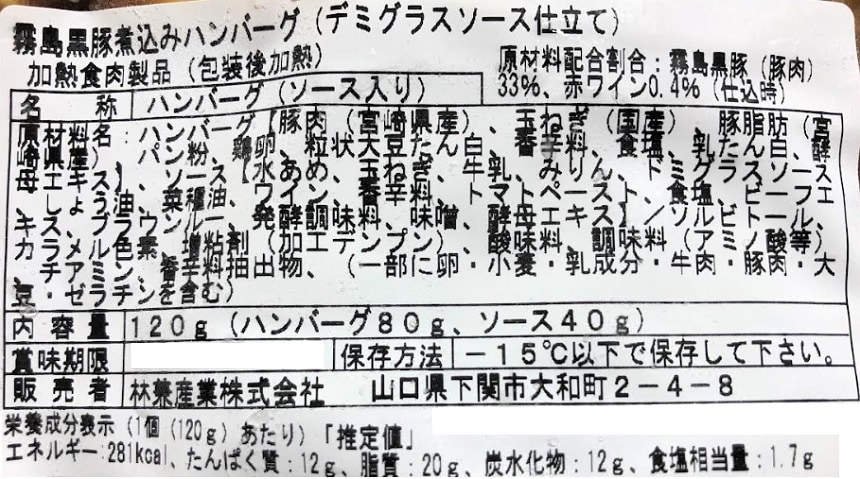 霧島黒豚煮込みハンバーグ（デミグラスソース仕立て）
加熱食肉製品（包装後加熱）
原材料配合割合：霧島黒豚（豚肉）
33%、赤ワイン0.4%（仕込時）
名称 ハンバーグ（ソース入り）
原材料名：ハンバーグ【豚肉（宮崎県産）、玉ねぎ（国産）、豚脂肪（宮
崎県産）、パン粉、鶏卵、粒状大豆たん白、香辛料、食塩、乳たん白、酵
母エキス】、ソース【水あめ、玉ねぎ、牛乳、みりん、ドミグラスソー
ス、しょう油、菜種油、ワイン、香辛料、トマトペースト、食塩、ビーフエ
キス、ブラウンルー、発酵調味料、味噌、酵母エキス】／ソルビトール、
カラメル色素、増粘剤（加工デンプン）、酸味料、調味料（アミノ酸等）
、香辛料抽出物、（一部に卵・小麦・乳成分・牛肉・豚肉・大
豆・ゼラチンを含む）
内容量 120g（ハンバーグ80g、ソース40g）
賞味期限 保存方法 －15℃以下で保存して下さい。
販売者 林兼産業株式会社 山口県下関市大和町2－4－8
栄養成分表示（1個（120g）あたり）「推定値」
エネルギー:281kcal、たんぱく質:12g、脂質:20g、炭水化物:12g、食塩相当量:1.7g